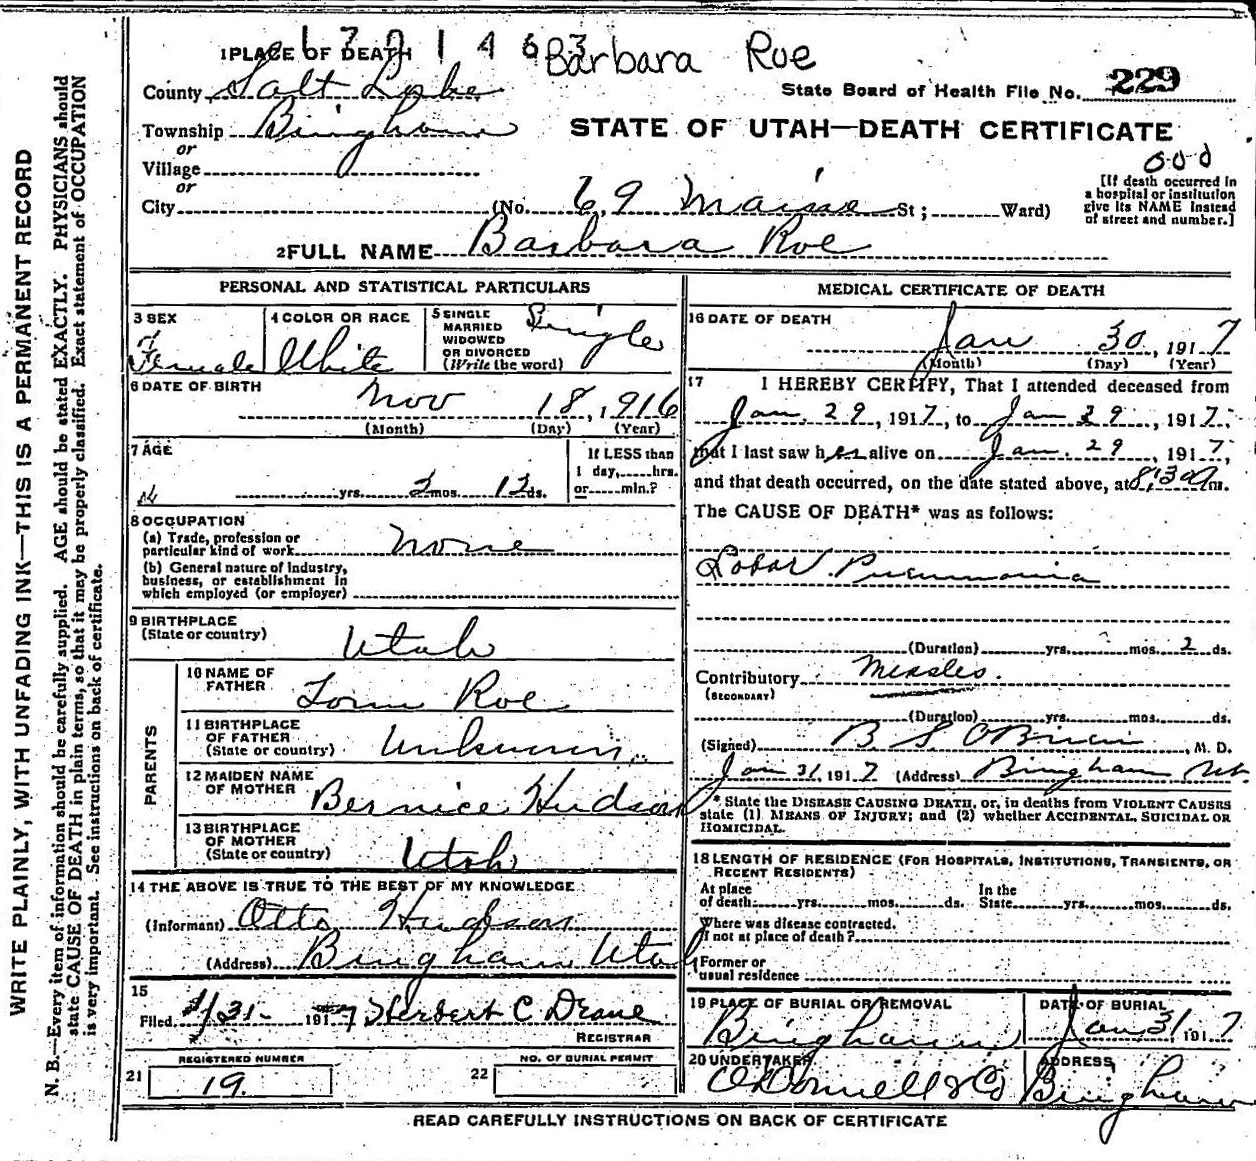 1 PLACE OF DEATH
Barbara Roe
County Salt Lake
State Board of Health File No. 229
Township Bingham
STATE OF UTAH—DEATH CERTIFICATE
or
Village
or
City (No. 69 Main St; Ward)
[If death occurred in
a hospital or institution
give its NAME instead
of street and number.]
2 FULL NAME Barbara Roe
PERSONAL AND STATISTICAL PARTICULARS
3 SEX
Female
4 COLOR OR RACE
White
5 SINGLE
MARRIED
WIDOWED
OR DIVORCED
(Write the word)
Single
6 DATE OF BIRTH
Nov 18, 1916
(Month) (Day) (Year)
7 AGE
yrs. 2 mos. 12 ds.
If LESS than
1 day, hrs.
or min.?
8 OCCUPATION
(a) Trade, profession or
particular kind of work None
(b) General nature of industry,
business, or establishment in
which employed (or employer)
9 BIRTHPLACE
(State or country) Utah
PARENTS
10 NAME OF
FATHER Tom Roe
11 BIRTHPLACE
OF FATHER
(State or country) Unknown
12 MAIDEN NAME
OF MOTHER Bernice Hudson
13 BIRTHPLACE
OF MOTHER
(State or country) Utah
14 THE ABOVE IS TRUE TO THE BEST OF MY KNOWLEDGE
(Informant) Otto Hudson
(Address) Bingham Utah
15
Filed 1/31 1917 Herbert C Deane
REGISTRAR
REGISTERED NUMBER
21 19.
NO. OF BURIAL PERMIT
22
MEDICAL CERTIFICATE OF DEATH
16 DATE OF DEATH
Jan 30, 1917
(Month) (Day) (Year)
17 I HEREBY CERTIFY, That I attended deceased from
Jan. 29, 1917, to Jan 29, 1917,
that I last saw her alive on Jan. 29, 1917,
and that death occurred, on the date stated above, at 8:30 m.
The CAUSE OF DEATH* was as follows:
Lobar Pneumonia
(Duration) yrs. mos. 2 ds.
Contributory Measles.
(SECONDARY)
(Duration) yrs. mos. ds.
(Signed) B. S. OBrien, M. D.
Jan 31, 1917 (Address) Bingham Ut
* State the DISEASE CAUSING DEATH, or, in deaths from VIOLENT CAUSES
state (1) MEANS OF INJURY; and (2) whether ACCIDENTAL, SUICIDAL OR
HOMICIDAL.
18 LENGTH OF RESIDENCE (FOR HOSPITALS, INSTITUTIONS, TRANSIENTS, OR
RECENT RESIDENTS)
At place
of death yrs. mos. ds.
In the
State yrs. mos. ds.
Where was disease contracted,
If not at place of death?
Former or
usual residence
19 PLACE OF BURIAL OR REMOVAL
Bingham
DATE OF BURIAL
Jan 31, 1917
20 UNDERTAKER
O'Donnell & Co
ADDRESS
Bingham
READ CAREFULLY INSTRUCTIONS ON BACK OF CERTIFICATE
WRITE PLAINLY, WITH UNFADING INK—THIS IS A PERMANENT RECORD
N. B.—Every item of information should be carefully supplied. AGE should be stated EXACTLY. PHYSICIANS should
state CAUSE OF DEATH in plain terms, so that it may be properly classified. Exact statement of OCCUPATION
is very important. See instructions on back of certificate.